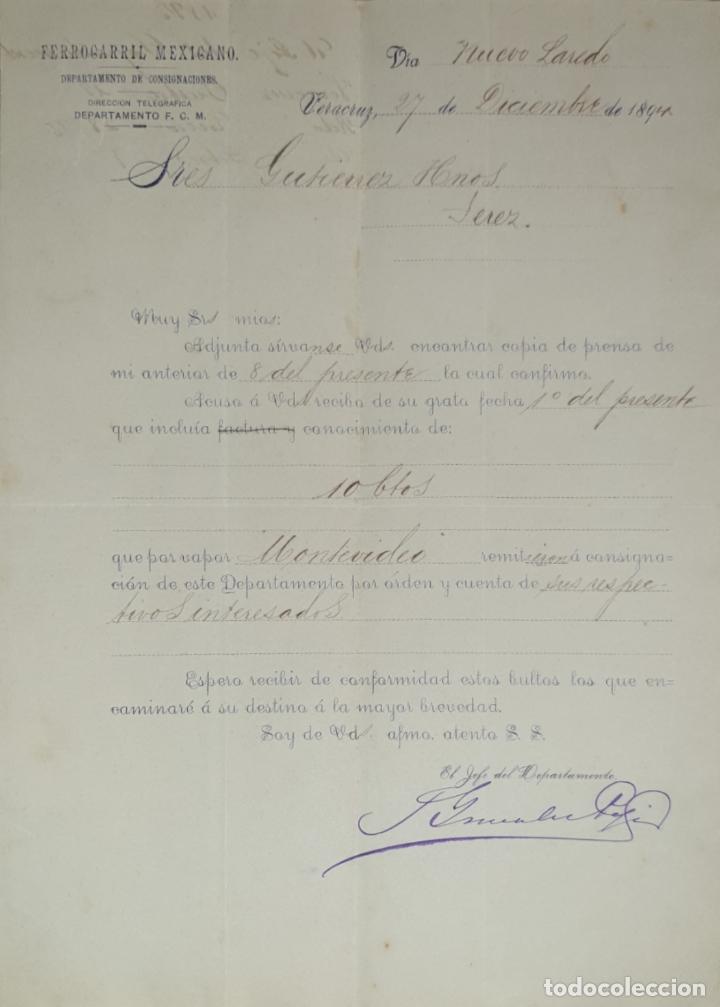 FERROCARRIL MEXICANO.
DEPARTAMENTO DE CONSIGNACIONES.
DIRECCION TELEGRAFICA
DEPARTAMENTO F. C. M.
Vía Nuevo Laredo
Veracruz, 27 de Diciembre de 189
Sres Gutierrez Hnos.
Jerez.
Muy Srs mios:
Adjunta sírvanse Vds. encontrar copia de prensa de
mi anterior de 8 del presente la cual confirmo.
Acuso á Vds recibo de su grata fecha 1º del presente
que incluía factura y conocimiento de:
10 btos
que por vapor Montevideo remitieron á consigna=
ción de este Departamento por orden y cuenta de sus respec-
tivos interesados.
Espero recibir de conformidad estos bultos los que en=
caminaré á su destino á la mayor brevedad.
Soy de Vds. afmo. atento S. S.
El Jefe del Departamento.
todocoleccion.net